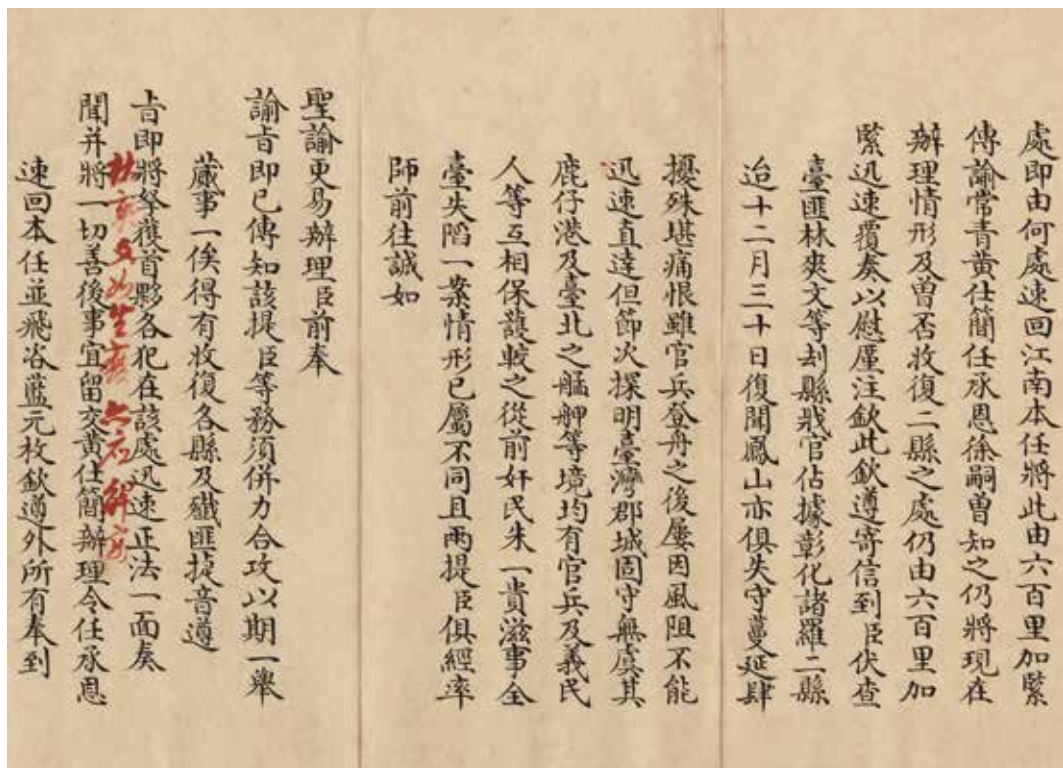 處即由何處速回江南本任將此由六百里加緊
傳諭常青黄仕簡任承恩徐嗣曾知之仍將現在
辦理情形及曾否收復二縣之處仍由六百里加
緊迅速覆奏以慰廑注欽此欽遵寄信到臣伏查
臺匪林爽文等刦縣戕官佔據彰化諸羅二縣
迨十二月三十日復聞鳳山亦俱失守蔓延肆
擾殊堪痛恨雖官兵登舟之後屢因風阻不能
迅速直達但節次探明臺灣郡城固守無虞其
鹿仔港及臺北之艋舺等境均有官兵及義民
人等互相保護較之從前奸民朱一貴滋事全
臺失陷一案情形已屬不同且兩提臣俱經率
師前往誠如
聖諭更易辦理臣前奉
諭旨即已傳知該提臣等務須併力合攻以期一舉
蕆事一俟得有收復各縣及殲匪捷音遵
旨即將拏獲首夥各犯在該處迅速正法一面奏
林爽文如生獲
聞并將一切善後事宜留交黄仕簡辦理令任承恩
速回本任並飛咨藍元枚欽遵外所有奉到